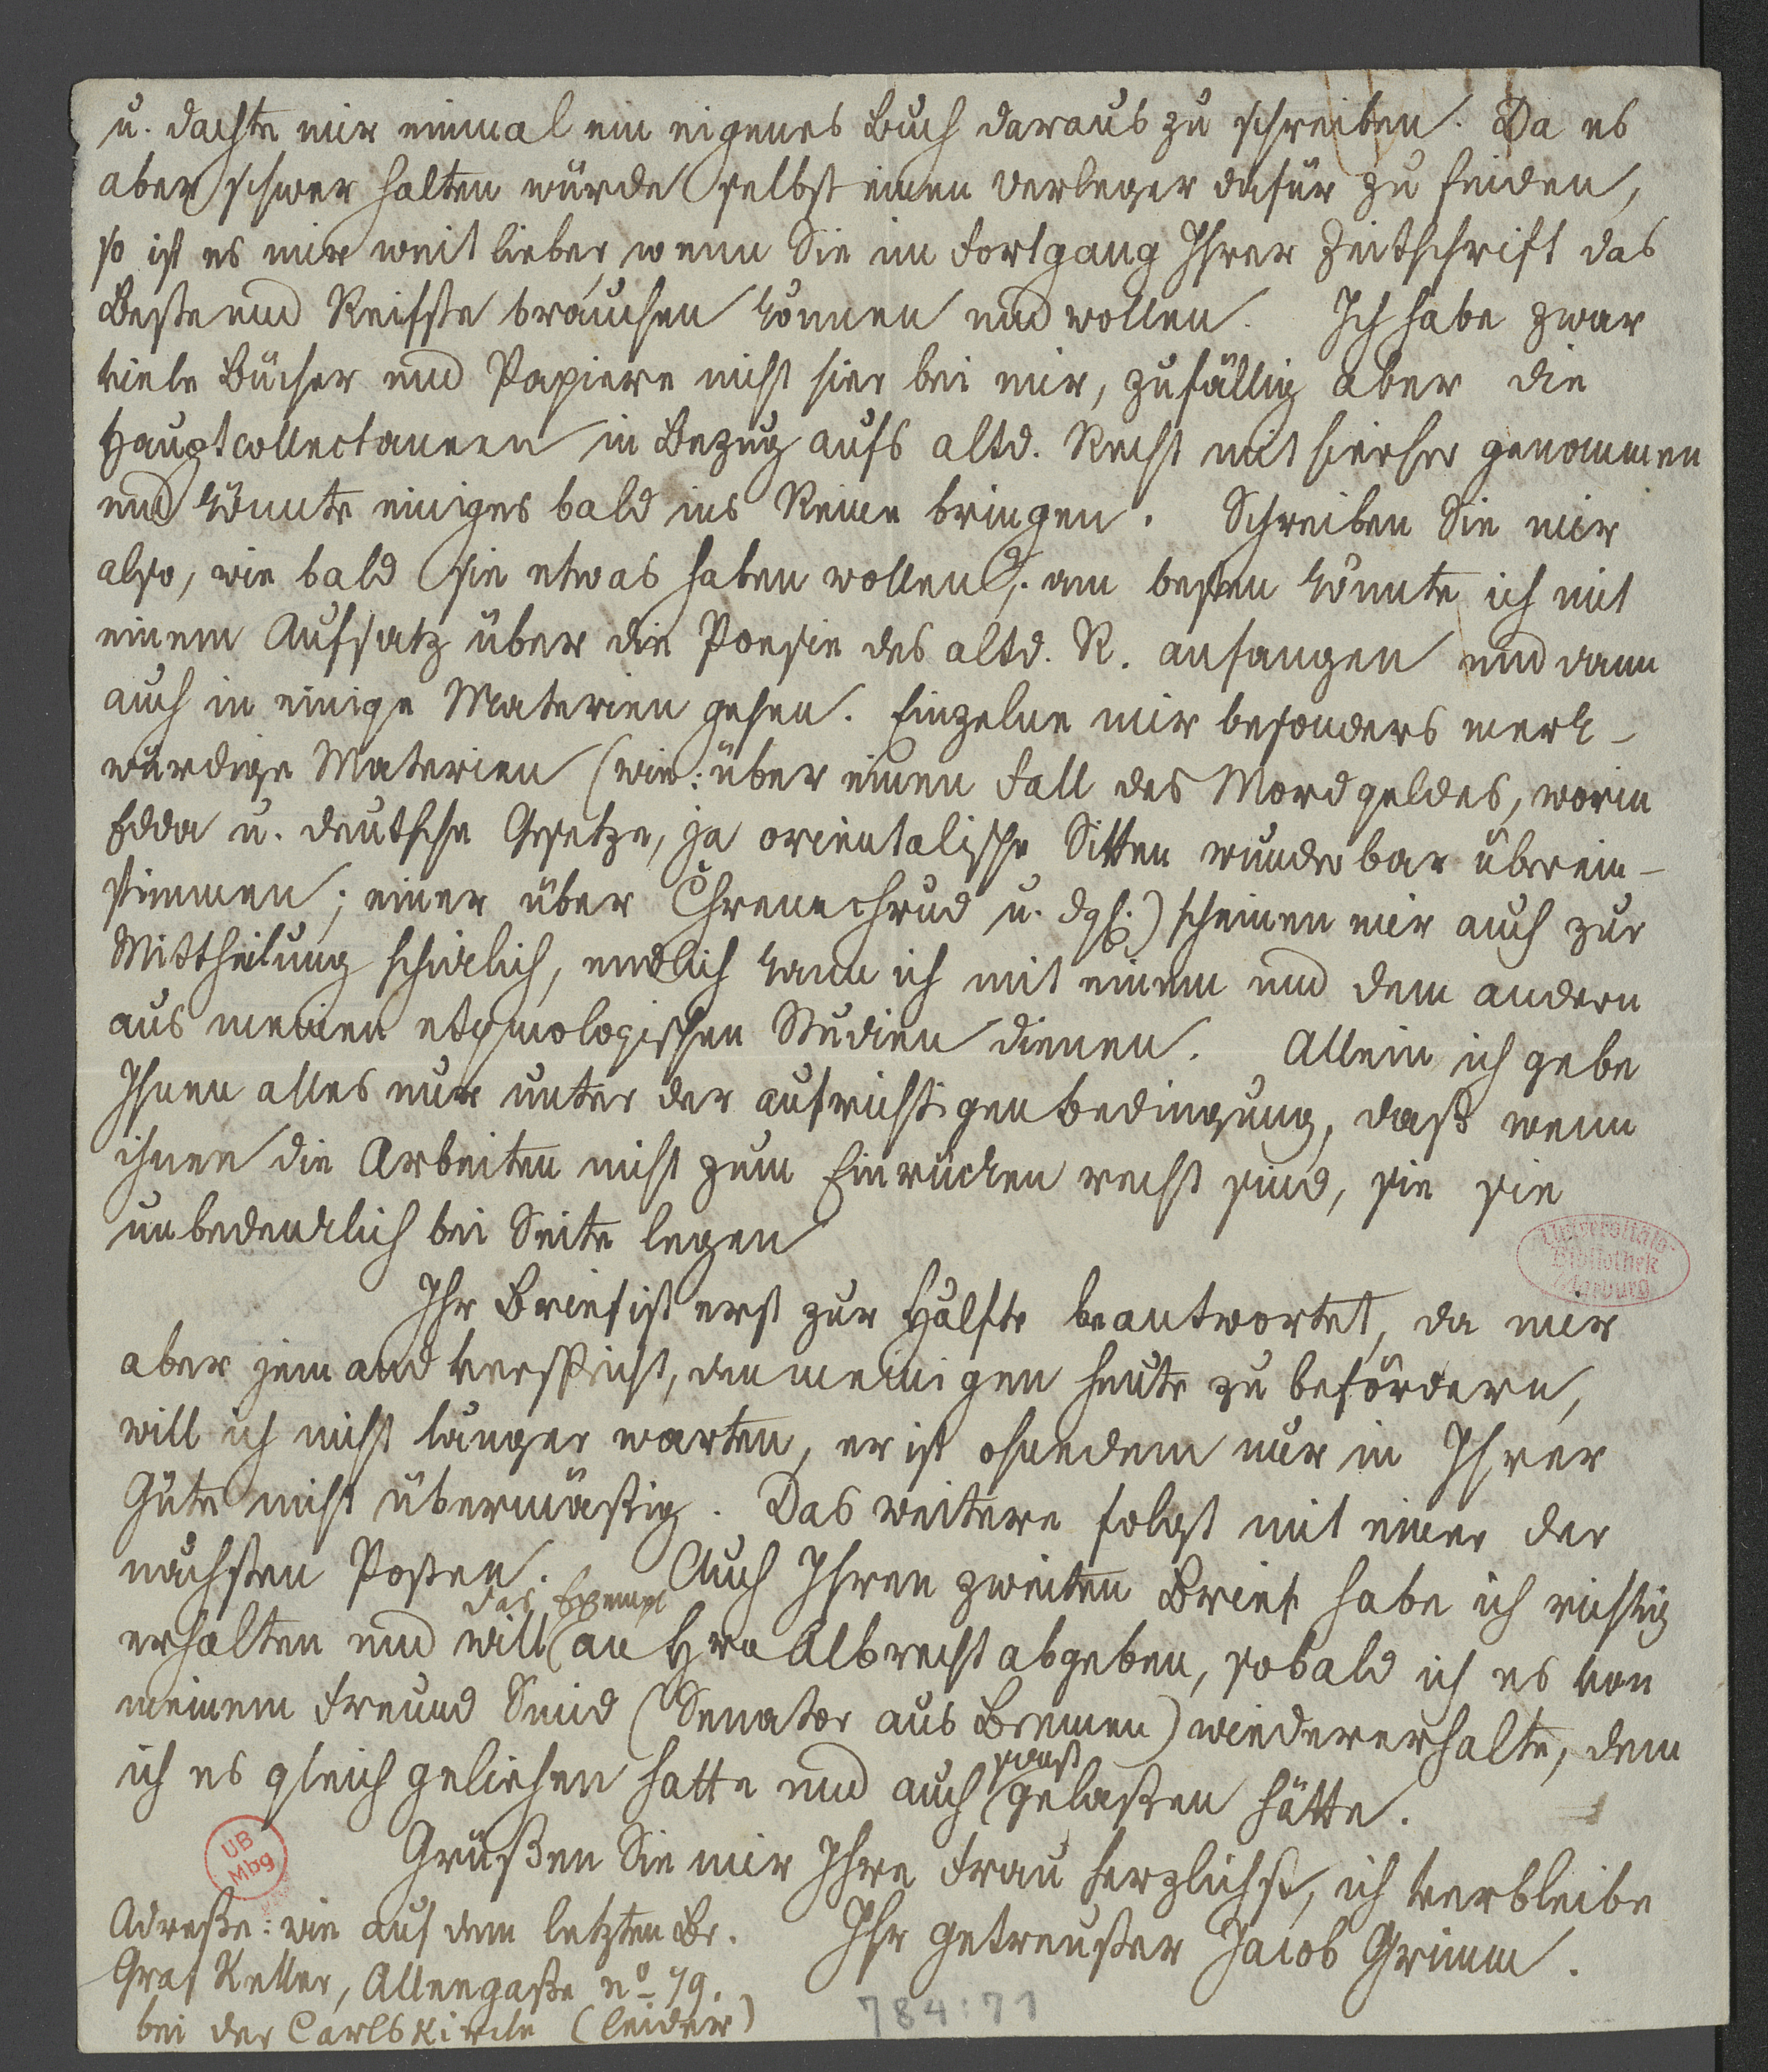 u. dachte mir einmal ein eigenes Buch daraus zu schreiben. Da es
aber schwer halten würde selbst einen Verleger dafür zu finden,
so ist es mir weit lieber, wenn Sie im Fortgang Ihrer Zeitschrift das
Beste und Reifste brauchen können und wollen. Ich habe zwar
viele Bücher und Papiere nicht hier bei mir, zufällig aber die
Hauptcollectaneen in Bezug aufs altd. Recht mit hierher genommen
und könnte einiges bald ins Reine bringen. Schreiben Sie mir
also, wie bald sie etwas haben wollen; am besten könnte ich mit
einem Aufsatz über die Poesie des altd. R. anfangen und dann
auch in einige Materien gehen. Einzelne mir besonders merk-
würdige Materien (wie: über einen Fall des Mordgeldes, worin
Edda u. deutsche Gesetze, ja orientalische Sitten wunderbar überein-
stimmen; einer über Chrenechrud u. dgl.) scheinen mir auch zur
Mittheilung schicklich, endlich kann ich mit einem und dem andern
aus meinen etymologischen Studien dienen. Allein ich gebe
Ihnen alles nur unter der aufrichtigen Bedingung, daß wenn
ihnen die Arbeiten nicht zum Einrücken recht sind, sie sie
unbedenklich bei Seite legen
Ihr Brief ist erst zur Hälfte beantwortet, da mir
aber jemand verspricht, den meinigen heute zu befördern,
will ich nicht länger warten, er ist ohnedem nur in Ihrer
Güte nicht übermäßig. Das weitere folgt mit einer der
nächsten Posten. Auch Ihren zweiten Brief habe ich richtig
das Exempl
erhalten und will an Hrn Albrecht abgeben, sobald ich es von
meinem Freund Smid (Senator aus Bremen) wiedererhalte, dem
sonst
ich es gleich geliehen hatte und auch gelaßen hätte.
Grüßen Sie mir Ihre Frau herzlichst, ich verbleibe
Ihr getreuster Jacob Grimm.
Adreße: wie auf dem letzten Br.
Graf Keller, Alleegaße no 79.
bei der Carlskirche (leider)
784:71
Universitäts-
Bibliothek
Marburg
UB
Mbg